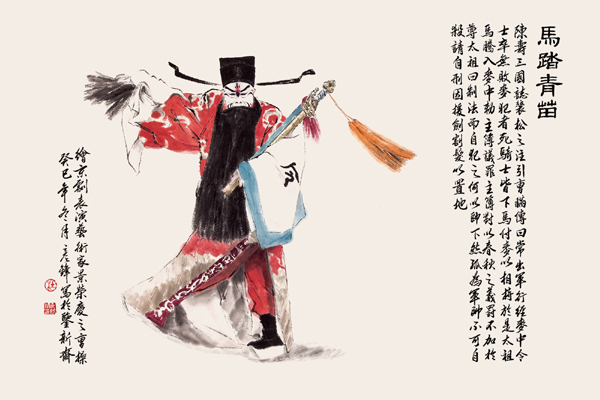 馬踏青苗
陳壽三國誌裴松之注引曹瞞傳曰常出軍行經麥中令
士卒無敗麥犯者死騎士皆下馬付麥以相持於是太祖
馬騰入麥中勅主簿議罪主簿對以春秋之義罰不加於
尊太祖曰制法而自犯之何以帥下然孤為軍帥不可自
殺請自刑因援劍割髮以置地
令
繪京劇表演藝術家景榮慶之曹操
癸巳年冬月彥鋒寫於鑒新齋